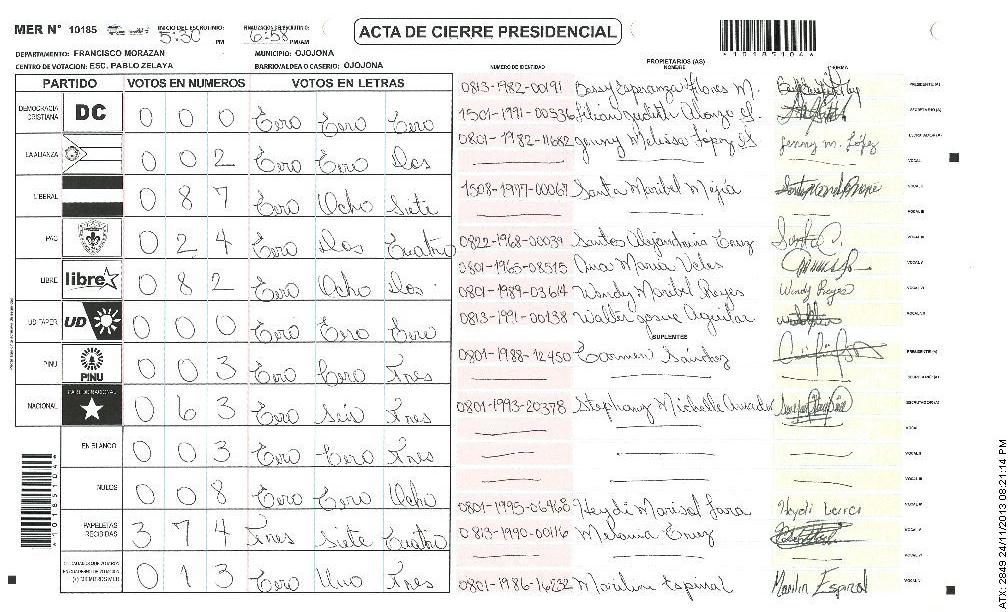 MER N° 10185 INICIO DEL ESCRUTINIO: 5:30 PM FINALIZACION DEL ESCRUTINIO: 6:58 PM/AM ACTA DE CIERRE PRESIDENCIAL
DEPARTAMENTO: FRANCISCO MORAZAN MUNICIPIO: OJOJONA
CENTRO DE VOTACION: ESC. PABLO ZELAYA BARRIO/ALDEA O CASERIO: OJOJONA
PARTIDO VOTOS EN NUMEROS VOTOS EN LETRAS
DEMOCRACIA CRISTIANA DC 0 0 0 Cero Cero Cero
LA ALIANZA 0 0 2 Cero Cero Dos
LIBERAL 0 8 7 Cero Ocho Siete
PAC 0 2 4 Cero Dos Cuatro
LIBRE libre 0 8 2 Cero Ocho Dos
UD/FAPER UD 0 0 0 Cero Cero Cero
PINU PINU 0 0 3 Cero Cero Tres
NACIONAL PARTIDO NACIONAL 0 6 3 Cero Seis Tres
EN BLANCO 0 0 3 Cero Cero Tres
NULOS 0 0 8 Cero Cero Ocho
PAPELETAS RECIBIDAS 3 7 4 Tres Siete Cuatro
0 1 3 Cero Uno Tres
PROPIETARIOS (AS)
NUMERO DE IDENTIDAD NOMBRE FIRMA
0813-1982-00191 Bessy Esperanza Flores M. PRESIDENTE (A)
1501-1991-00536 Lilian Judith SECRETARIO (A)
0801-1982-11682 Jenny Melissa López Jenny M. López ESCRUTADOR (A)
VOCAL I
1508-1977-00067 Santa Maribel Mejía VOCAL II
VOCAL III
0822-1968-00039 Santos Alejandrina Cruz
0801-1965-08515 Ana Maria Veles VOCAL V
0801-1989-03614 Wendy Maribel Reyes Wendy Reyes VOCAL VI
0813-1991-00138 Walter Josue Aguilar
SUPLENTES
0801-1988-12450 Carmen Sánchez PRESIDENTE (A)
SECRETARIO (A)
0801-1993-20378 Stephany Michelle Amador ESCRUTADOR (A)
VOCAL I
VOCAL II
VOCAL III
0801-1995-06968 Heydi Marisol Lara
0813-1990-00116 Melania Cruz
0801-1986-16232 Marilin Espinal Marilin Espinal
ATX-2849 24/11/2013 08:21:14 PM